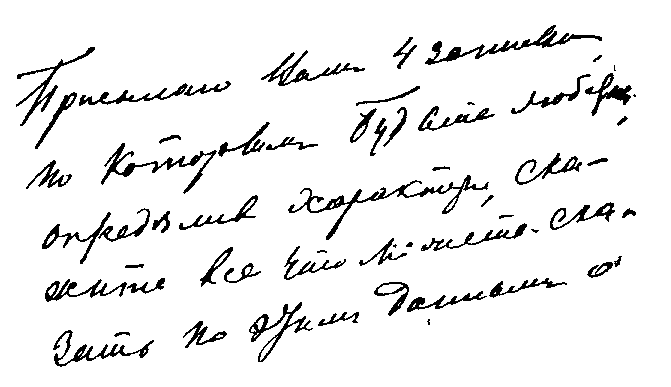 Присылаю Вам 4 записки,
по которым Будьте любезны,
определив характер, ска-
жите все что можете ска-
зать по этим данным о